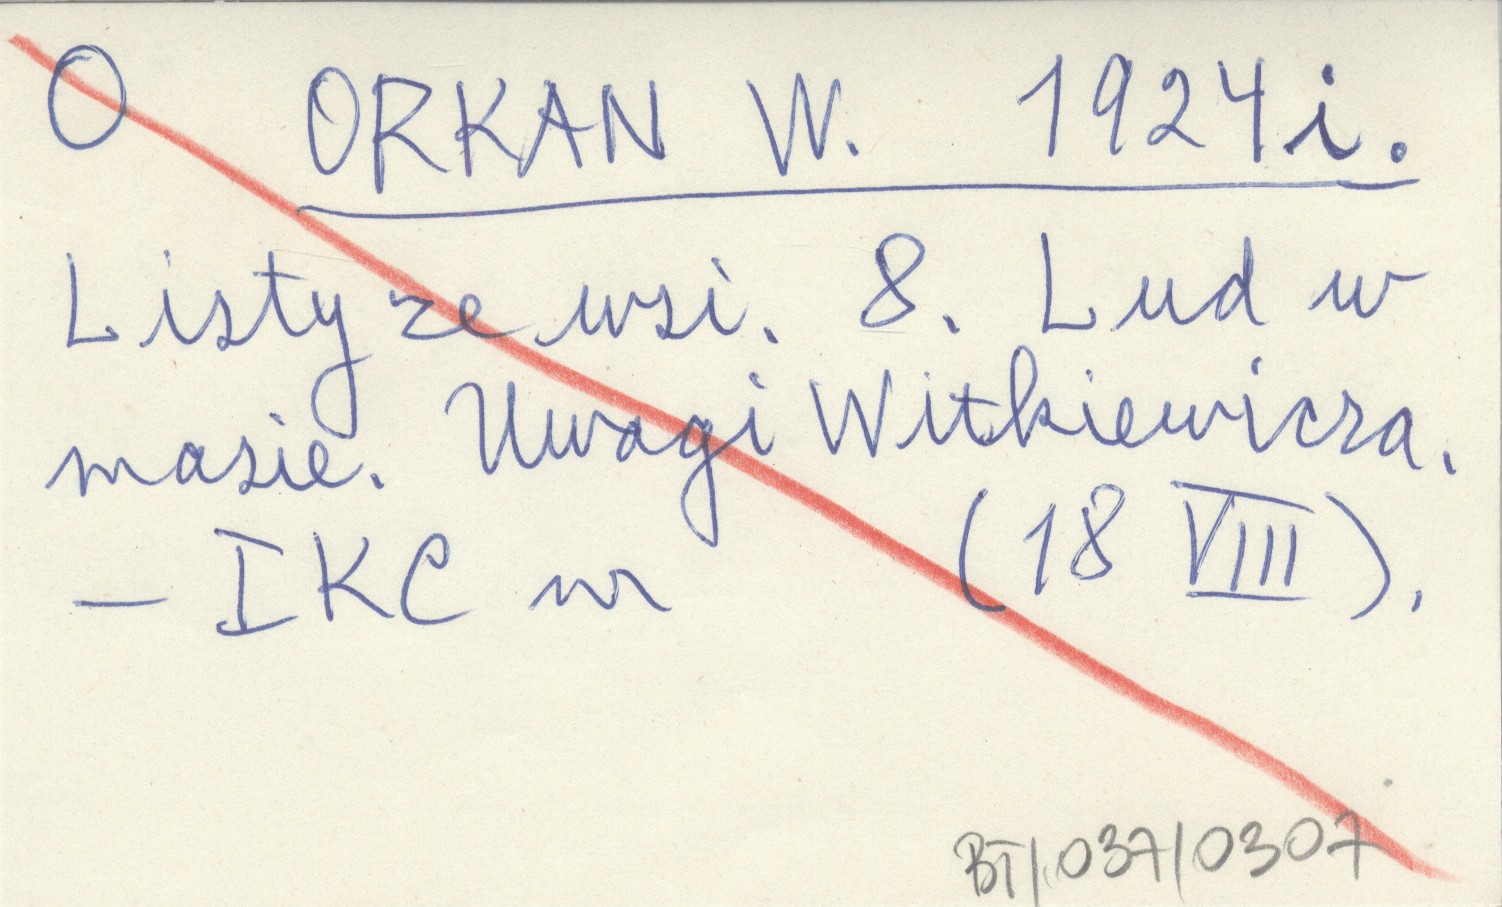 O ORKAN W. 1924i.
Listy ze wsi. 8. Lud w
masie. Uwagi Witkiewicza.
— IKC nr (18 VIII).
BT/037/0307